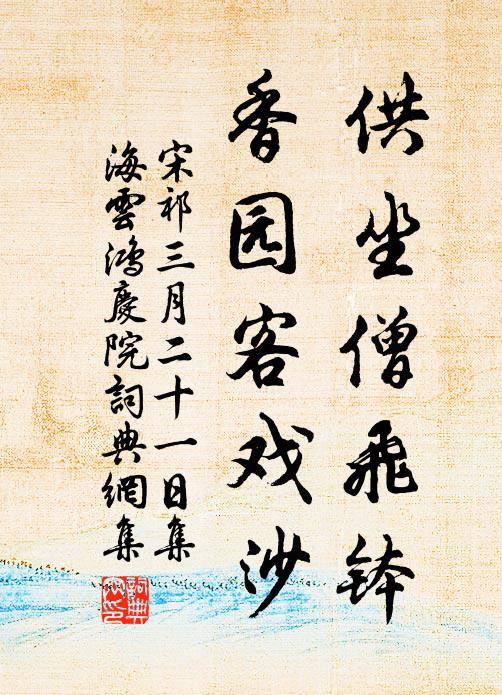 供坐僧飛鉢
香园客戏沙
宋祁三月二十一日集
海雲鴻慶院詞典網集